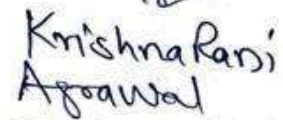 Krishna Rani
Agrawal